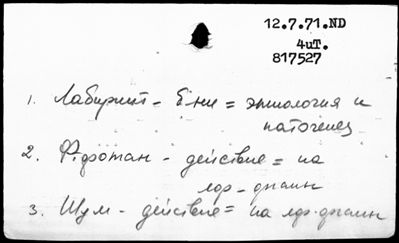 12.7.71.ND
4uT.
817527
1. Лабиринт - б-ни = этиология и
патогенез
2. Фтротан - действие = на
лфр-дналин
3. Шум - действие = на лфр-дналин